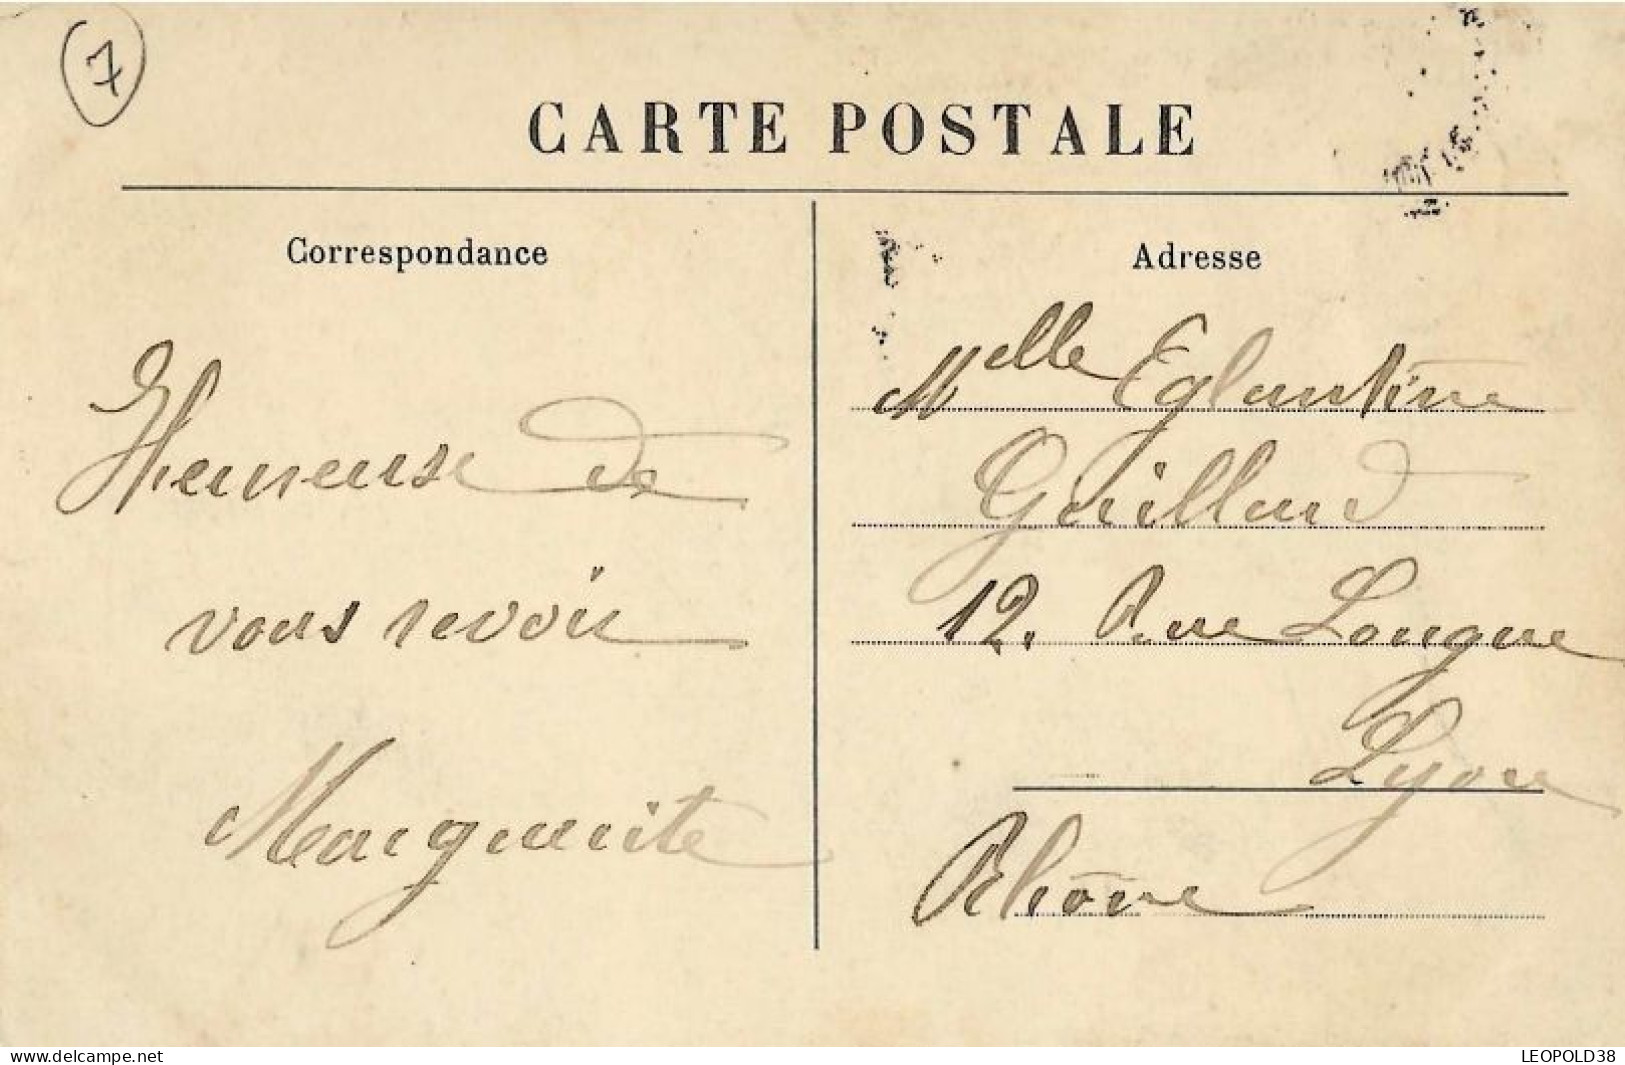 7
CARTE POSTALE
Correspondance
Heureuse de
vous revoir
Marguerite
Adresse
Melle Eglantine
Gaillard
12. Rue Longue
Lyon
Rhône
www.delcampe.net
LEOPOLD38